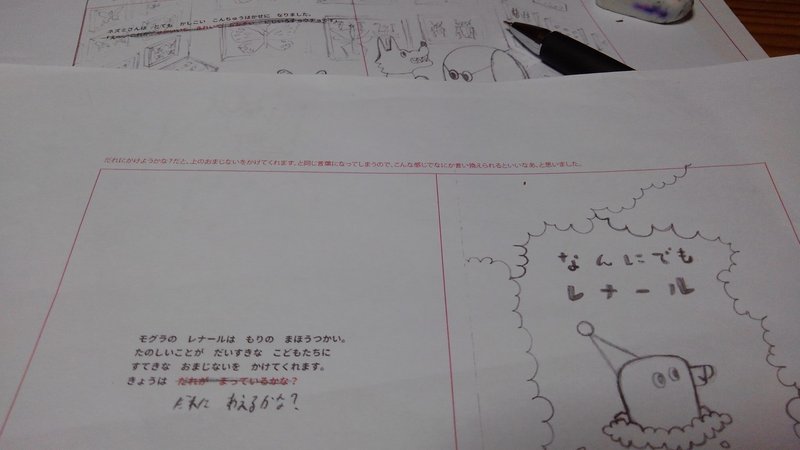 ネズミさんは とても かしこい こんちゅうはかせに なりました。
だれにかけようかな?だと、上のおまじないをかけてくれます。と同じ言葉になってしまうので、こんな感じでなにか言い換えられるといいなあ、と思いました。
モグラの レナールは もりの まほうつかい。
たのしいことが だいすきな こどもたちに
すてきな おまじないを かけてくれます。
きょうは だれが まっているかな?
だれに あえるかな?
なんにでも
レナール